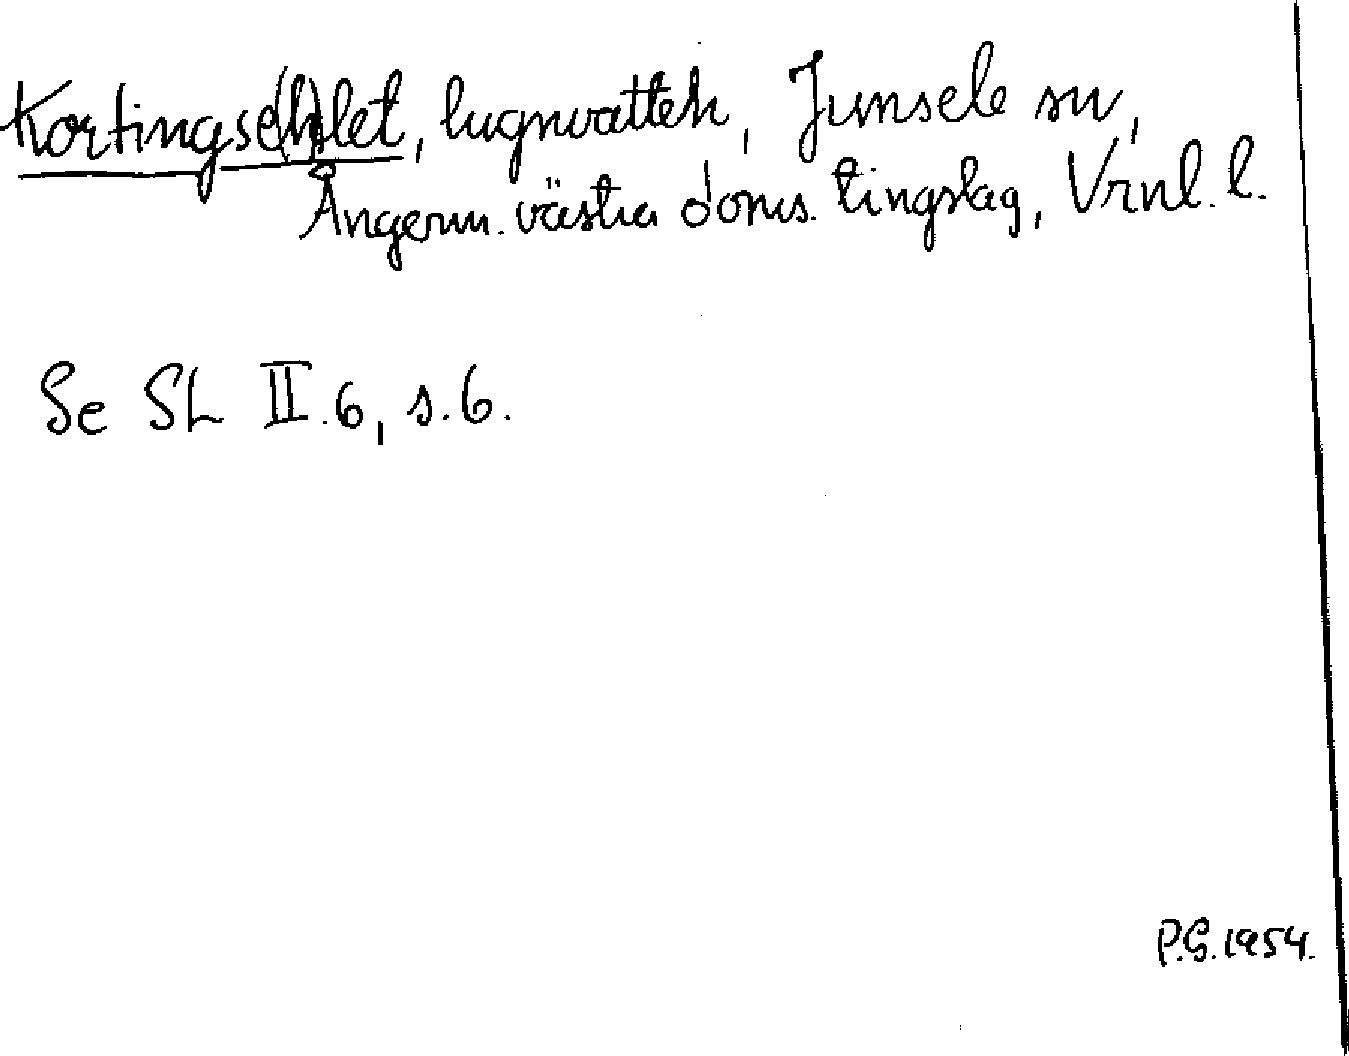 Kortingse(h)let, lugnvatten, Junsele sn,
Ångerm. västra doms. tingslag, Vrnl. l.
Se SL II.6, s.6.
P.G.1954.